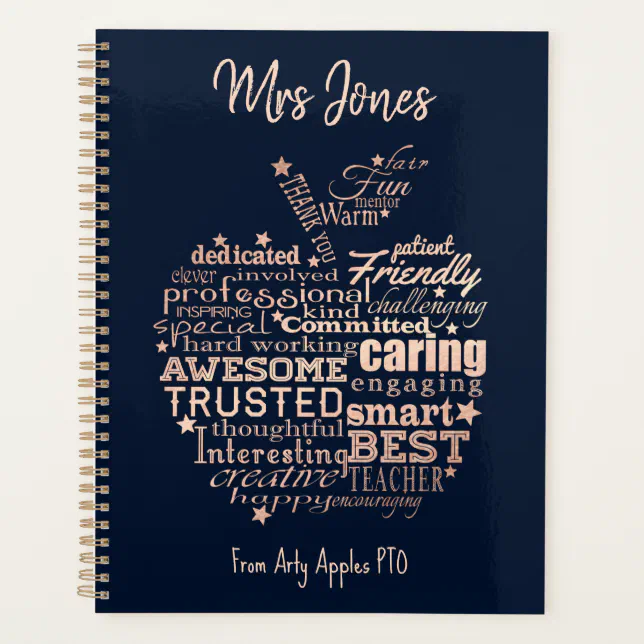 Mrs Jones
fair
Fun
mentor
Warm
THANK YOU
dedicated
patient
clever involved
Friendly
professional
challenging
INSPIRING kind
special Committed
hard working
caring
AWESOME
engaging
TRUSTED
smart
thoughtful
Interesting
BEST
creative
TEACHER
happy
encouraging
From Arty Apples PTO